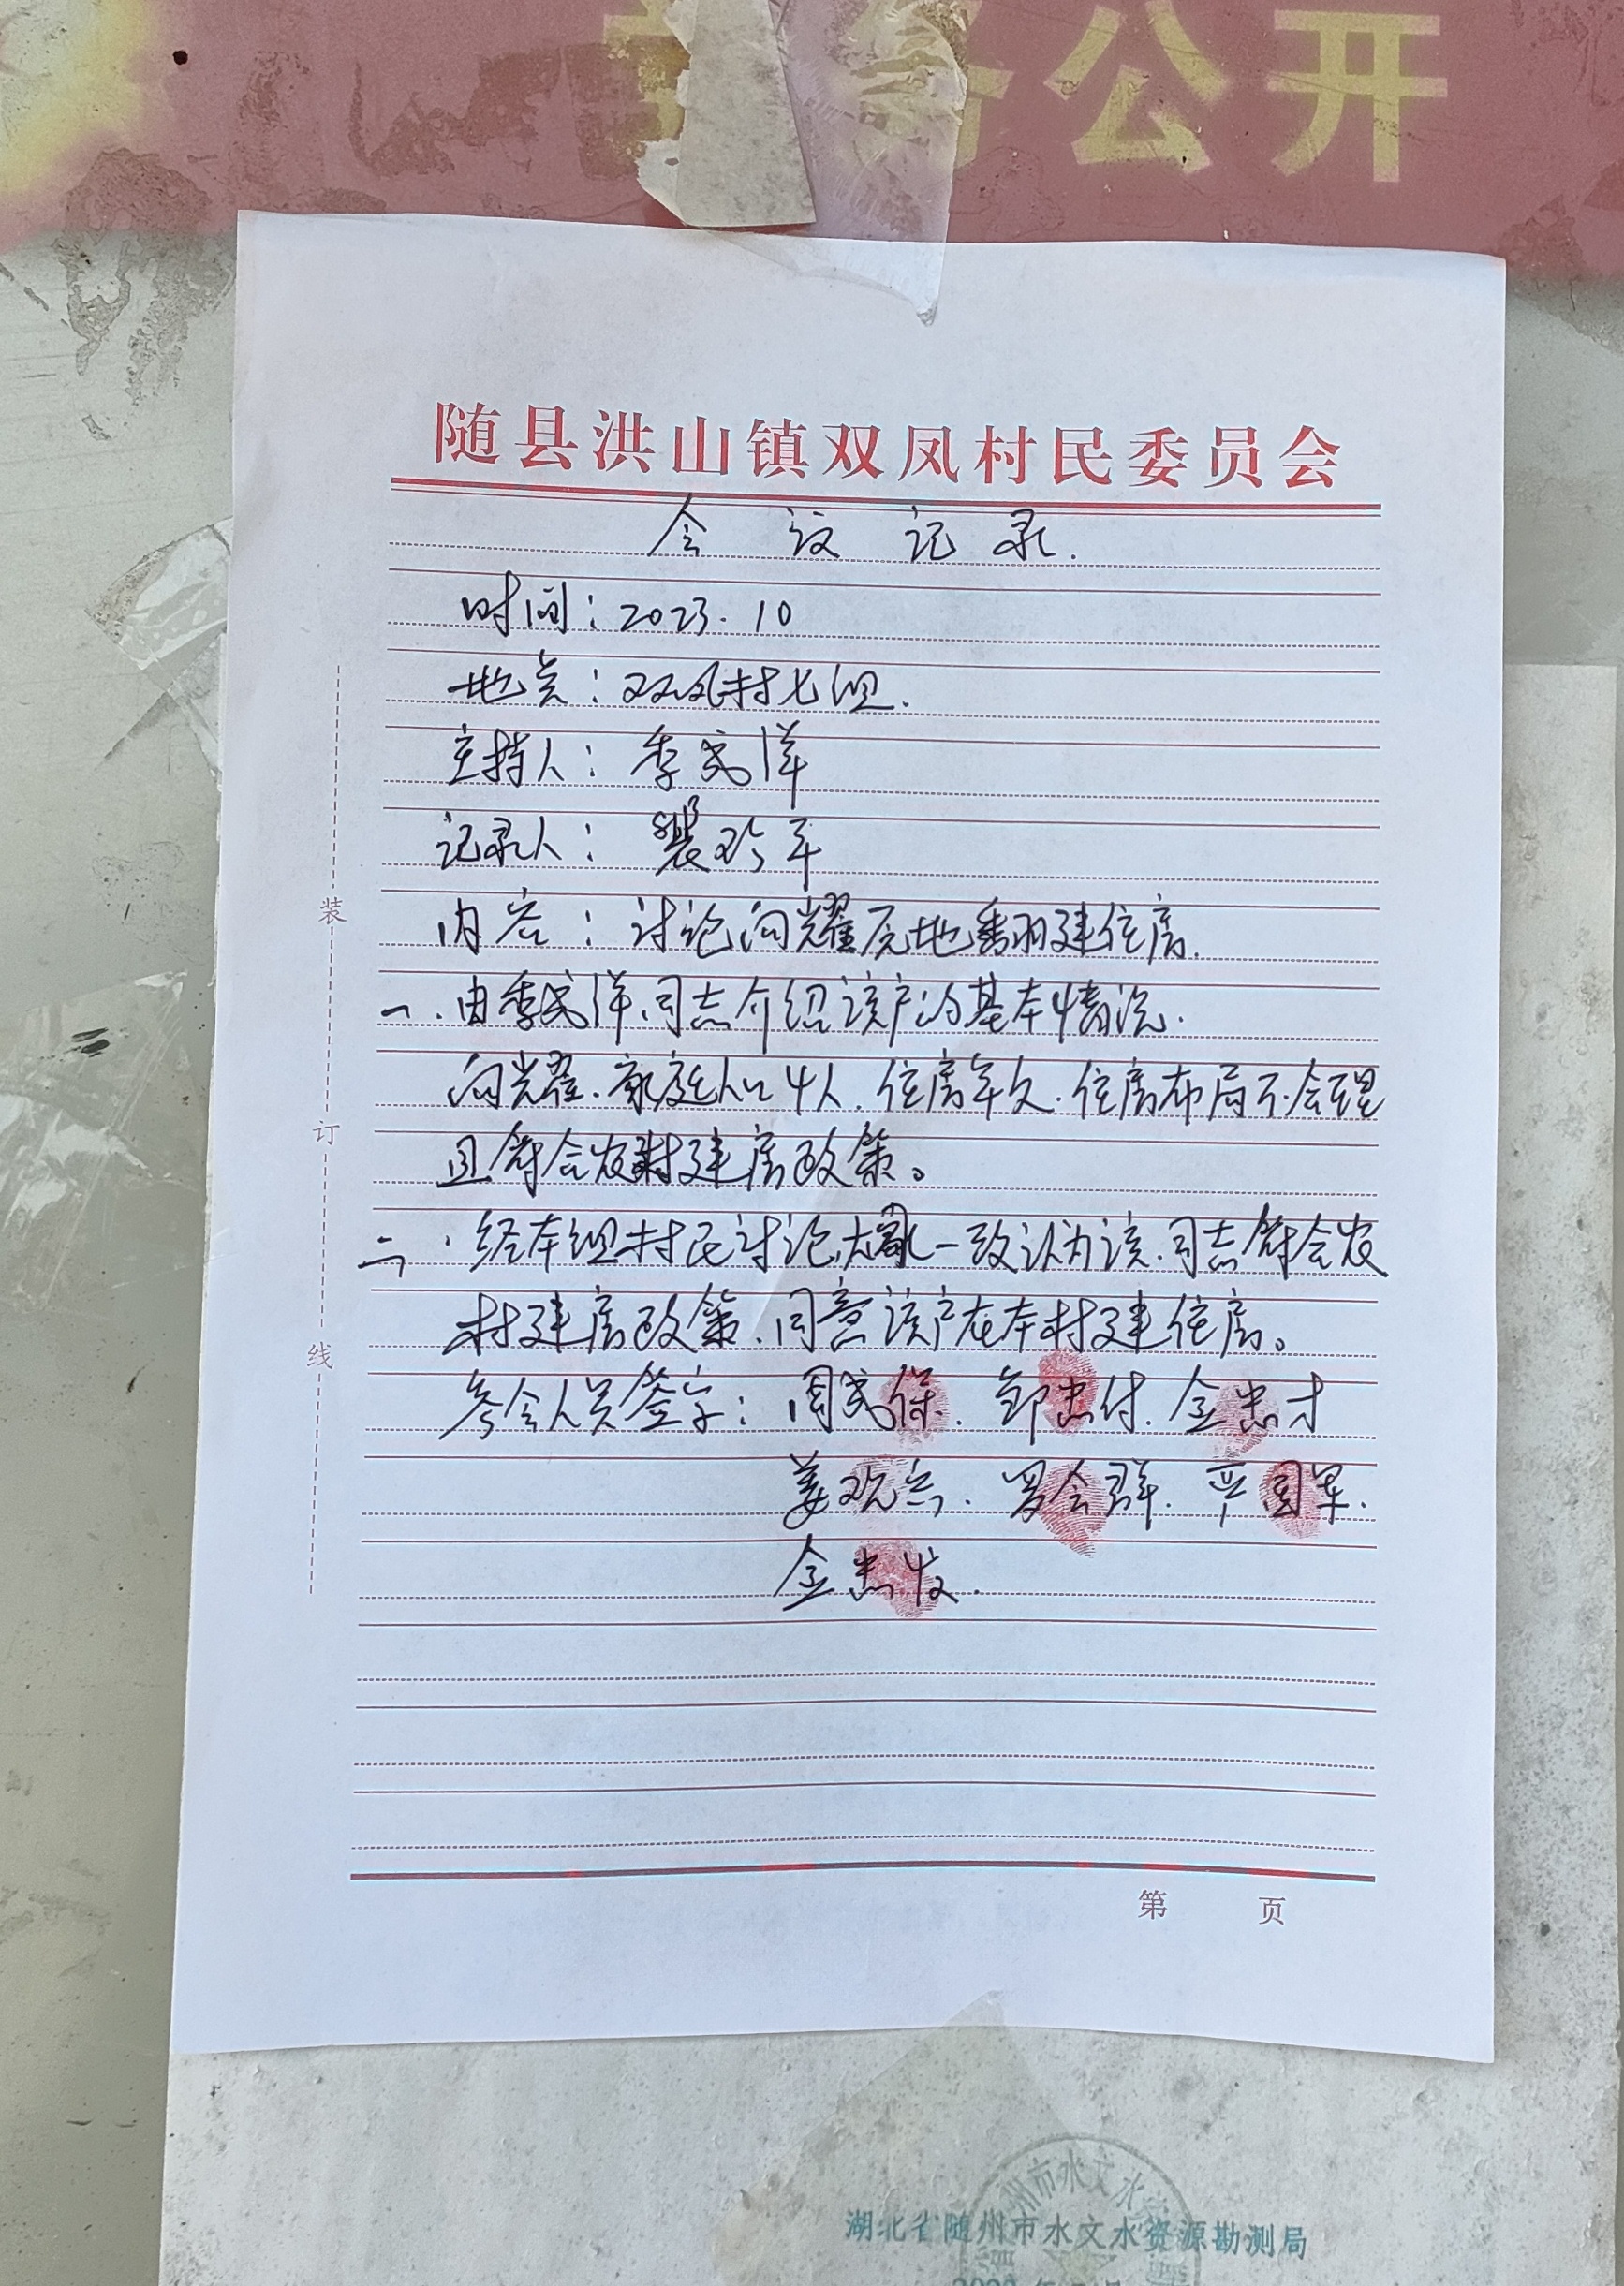 公开
随县洪山镇双凤村民委员会
会议记录.
时间：2023.10
地点：双凤村七组.
主持人：季成洋
记录人：裴欢平
内容：讨论向耀原地翻建住房.
一.由季成洋同志介绍该户的基本情况.
向耀.家庭人口4人.住房年久.住房布局不合理
且符合农村建房政策。
二.经本组村民讨论大家一致认为该同志符合农
村建房政策.同意该户在本村建住房。
参会人员签字：周成保.邹忠付.金忠才
姜观兵.罗会群.严国军.
金忠发.
装
订
线
第 页
湖北省随州市水文水资源勘测局